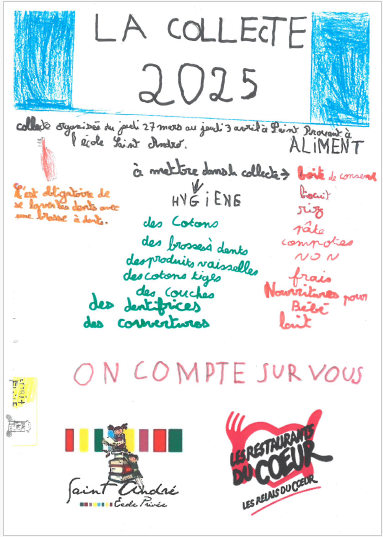 LA COLLECTE
2025
collecte organisée du jeudi 27 mars au jeudi 3 avril à Saint
l'école Saint André.
ALiMENT
à mettre dans la collecte → boite de conserve
HYGiENE
biscuit
riz
pâte
compotes
NON
frais
Nourritures pour
Bébé
lait
L'est obligatoire de
se laver les dents avec
une brosse à dents.
des Cotons
des brosses à dents
des produits vaisselles
des cotons tiges
des couches
des dentifrices
des couvertures
ON COMPTE SUR VOUS
Saint André
École Privée
LES RESTAURANTS
DU COEUR
LES RELAIS DU COEUR